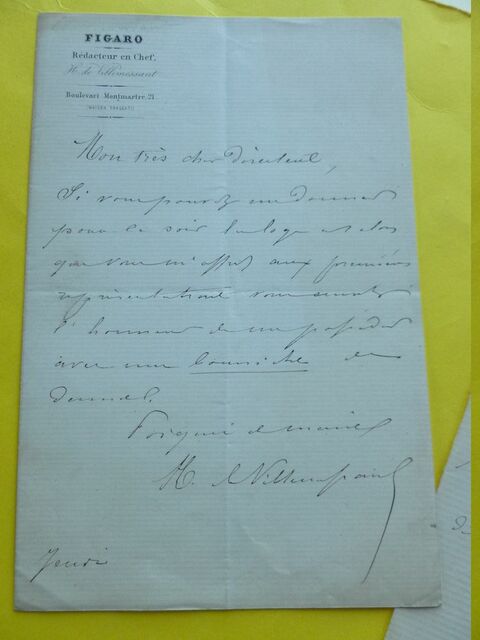 FIGARO
Rédacteur en Chef,
H. de Villemessant
Boulevart Montmartre, 21
(MAISON FRASCATI)
Mon très cher Directeur,
Si vous pouvez me donner
pour ce soir
que vous m'offrez aux premières
représentations vous
l'honneur de me posséder
avec une bourriche de
dames.
H. de Villemessant
Jeudi